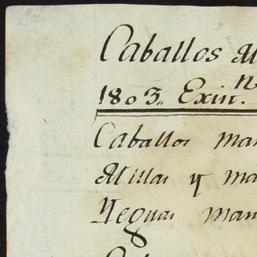 Caballos
1803. Exist.
Caballos man
Mulas y ma
Yeguas man